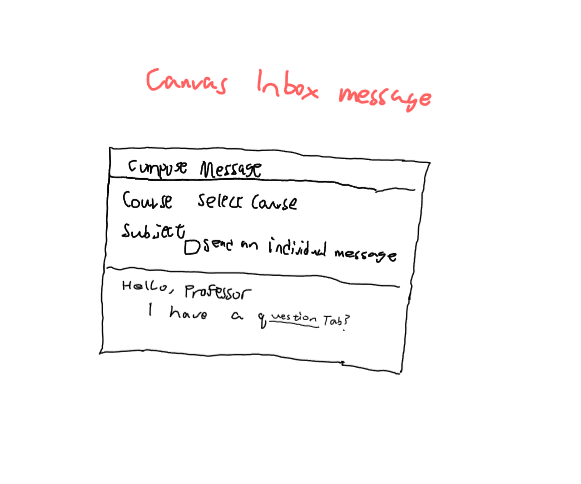 Canvas Inbox message
Compose Message
Course Select Course
Subject
Send an individual message
Hello, Professor
I have a question Tab?